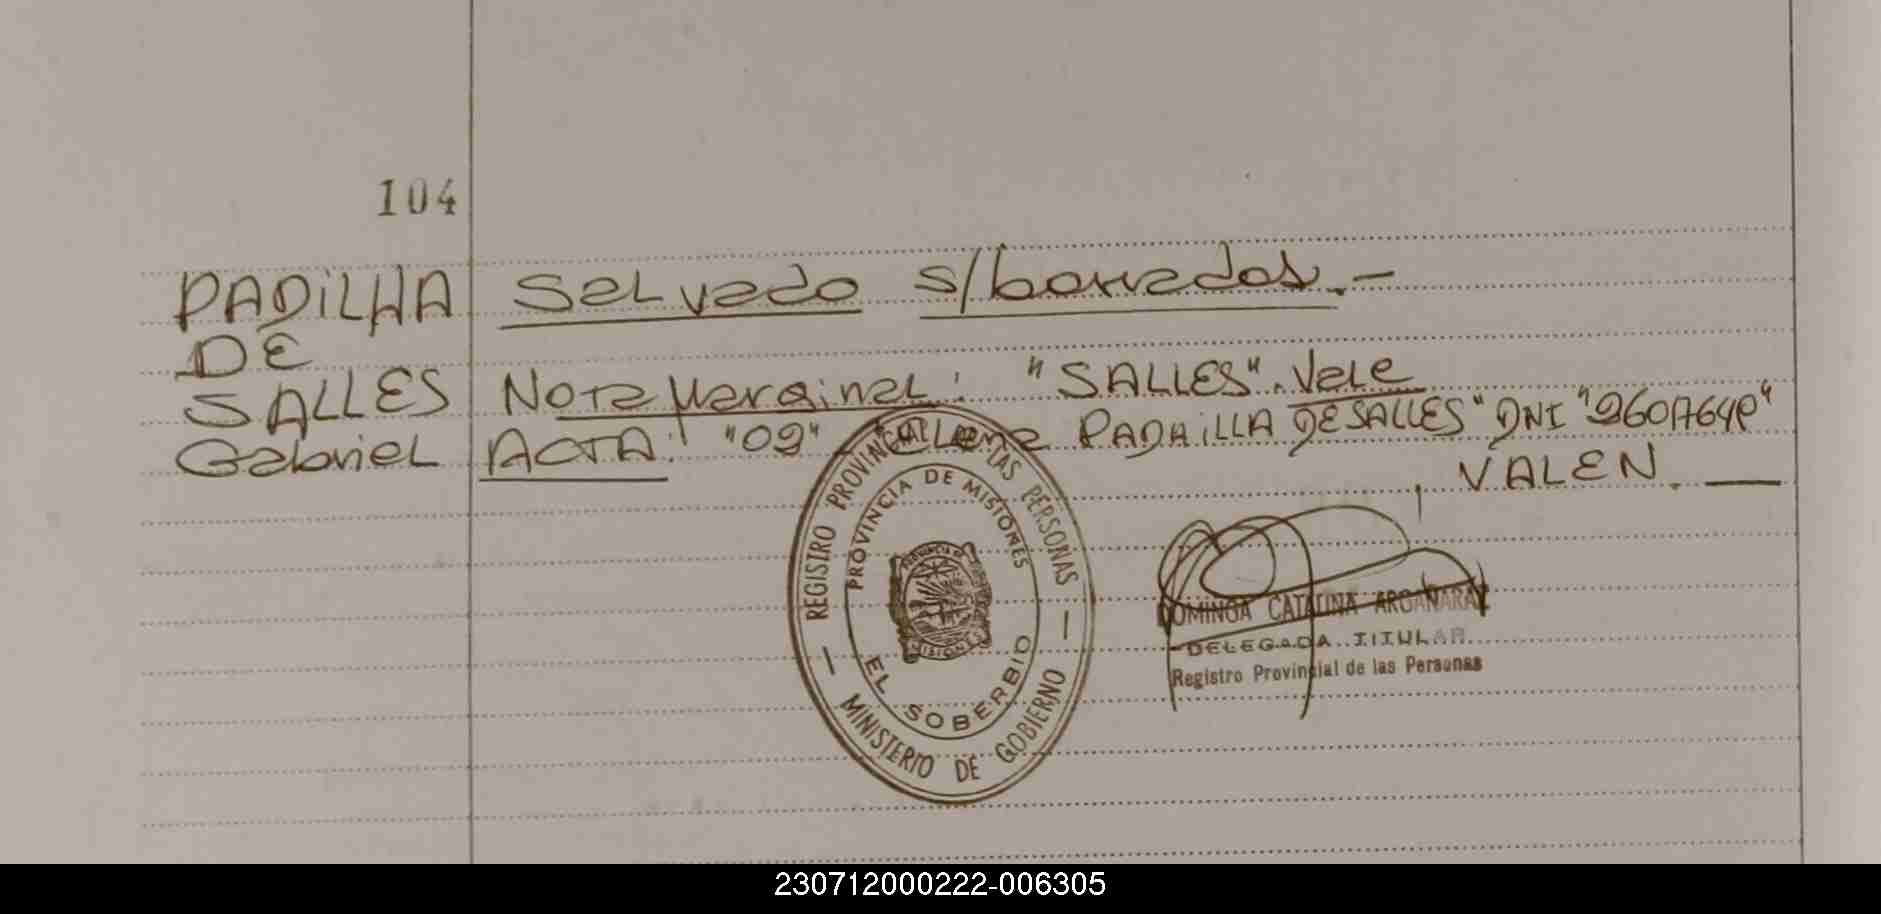 104
PADILHA
DE
SALLES
Gabriel
Salvado s/borrados.-
Nota Marginal: "SALLES". Vale
ACTA: "09" PADAILLA DE SALLES" DNI
VALEN.
REGISTRO PROVINCIAL DE LAS PERSONAS
MINISTERIO DE GOBIERNO
PROVINCIA DE MISIONES
EL SOBERBIO
DOMINGA CATALINA ARGAÑARAZ
DELEGADA TITULAR
Registro Provincial de las Personas
230712000222-006305